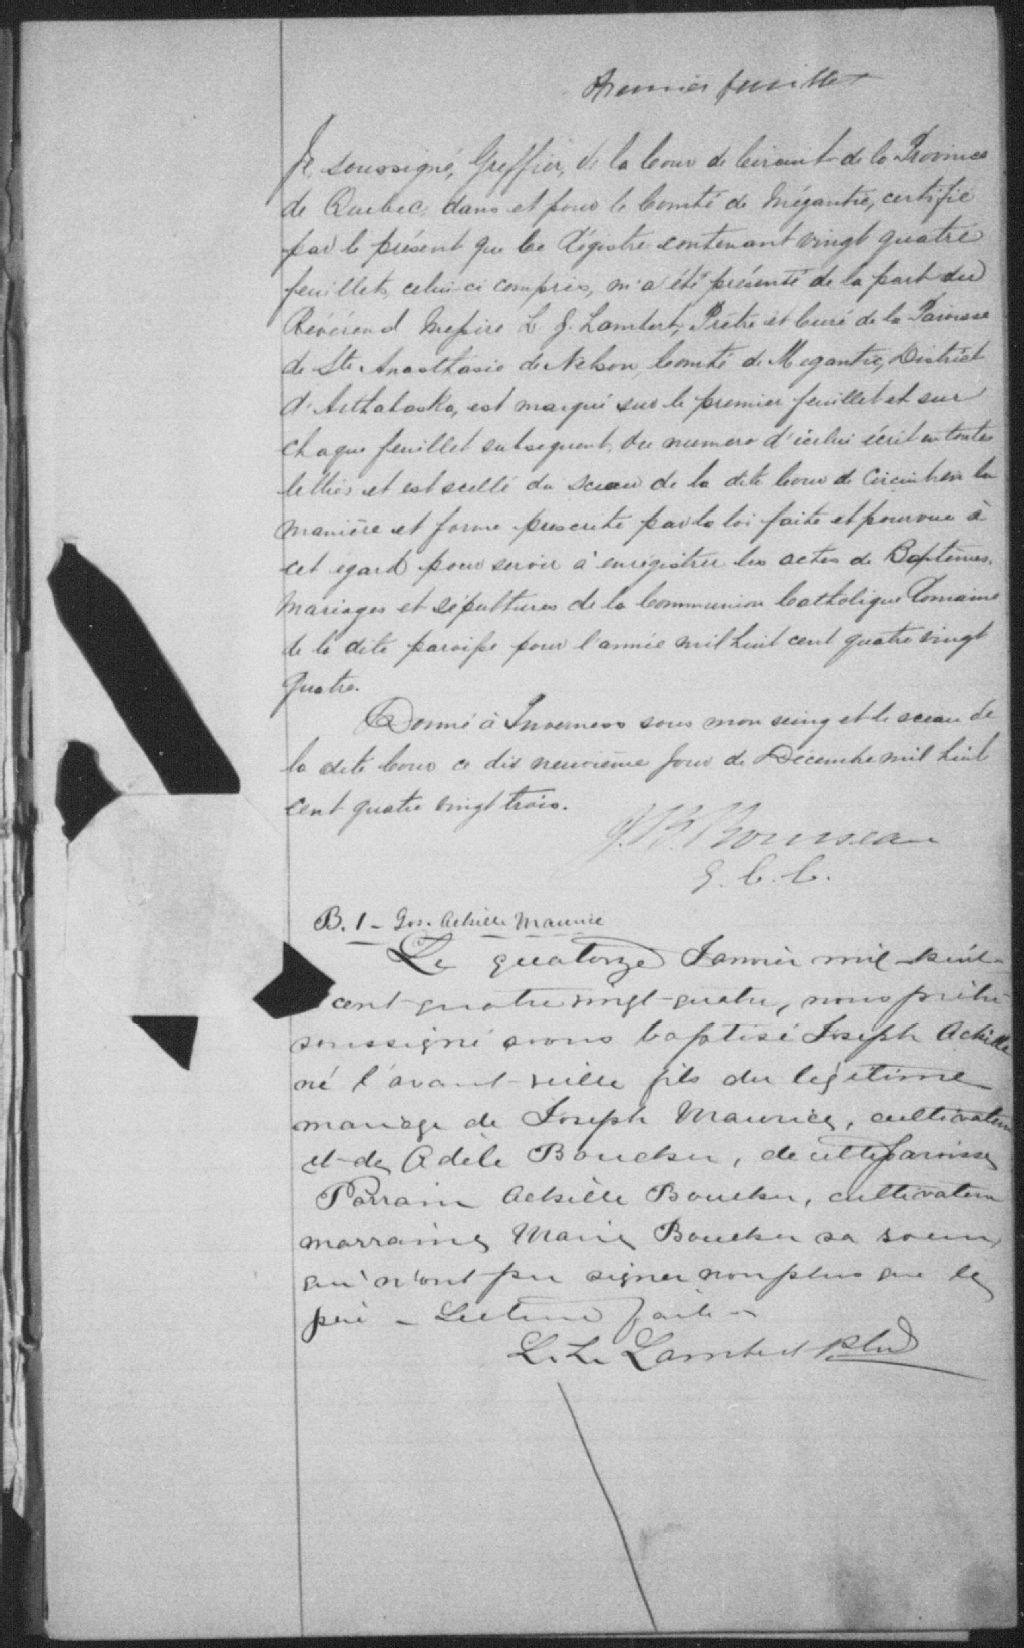 Premier feuillet
Je, soussigné, Greffier, de la Cour de Circuit de la Province
de Québec, dans et pour le Comté de Mégantic, certifie
par le présent que ce Régistre contenant vingt quatre
feuillets, celui-ci compris, m'a été présenté de la part du
Révérend Messire L. J. Lambert, Prêtre et Curé de la Paroisse
de Ste Anasthasie de Nelson, Comté de Megantic, District
d'Arthabaska, est marqué sur le premier feuillet et sur
chaque feuillet subsequent, du numero d'icelui écrit en toutes
lettres et est scellé du sceau de la dite Cour de Circuit en la
manière et forme prescrite par la loi faite et pourvue à
cet égard pour servir à enrégistrer les actes de Baptêmes,
Mariages et sépultures de la Communion Catholique Romaine
de la dite paroisse pour l'année mil huit cent quatre vingt
quatre.
Donné à Inverness sous mon seing et le sceau de
la dite Cour ce dix neuvième jour de Décembre mil huit
cent quatre vingt trois.
J. B. Rousseau
G. C. C.
B. 1 - Jos. Achille Maurice
Le quatorze Janvier mil-huit-
cent-quatre vingt-quatre, nous prêtre
soussigné avons baptisé Joseph Achille
né l'avant-veille fils du légitime
mariage de Joseph Maurice, cultivateur
et de Adèle Boucher, de cette paroisse
Parrain Achille Boucher, cultivateur
marraine Marie Boucher sa soeur,
qui n'ont pu signer non plus que le
père - Lecture faite -
L. L. Lambert Ptre